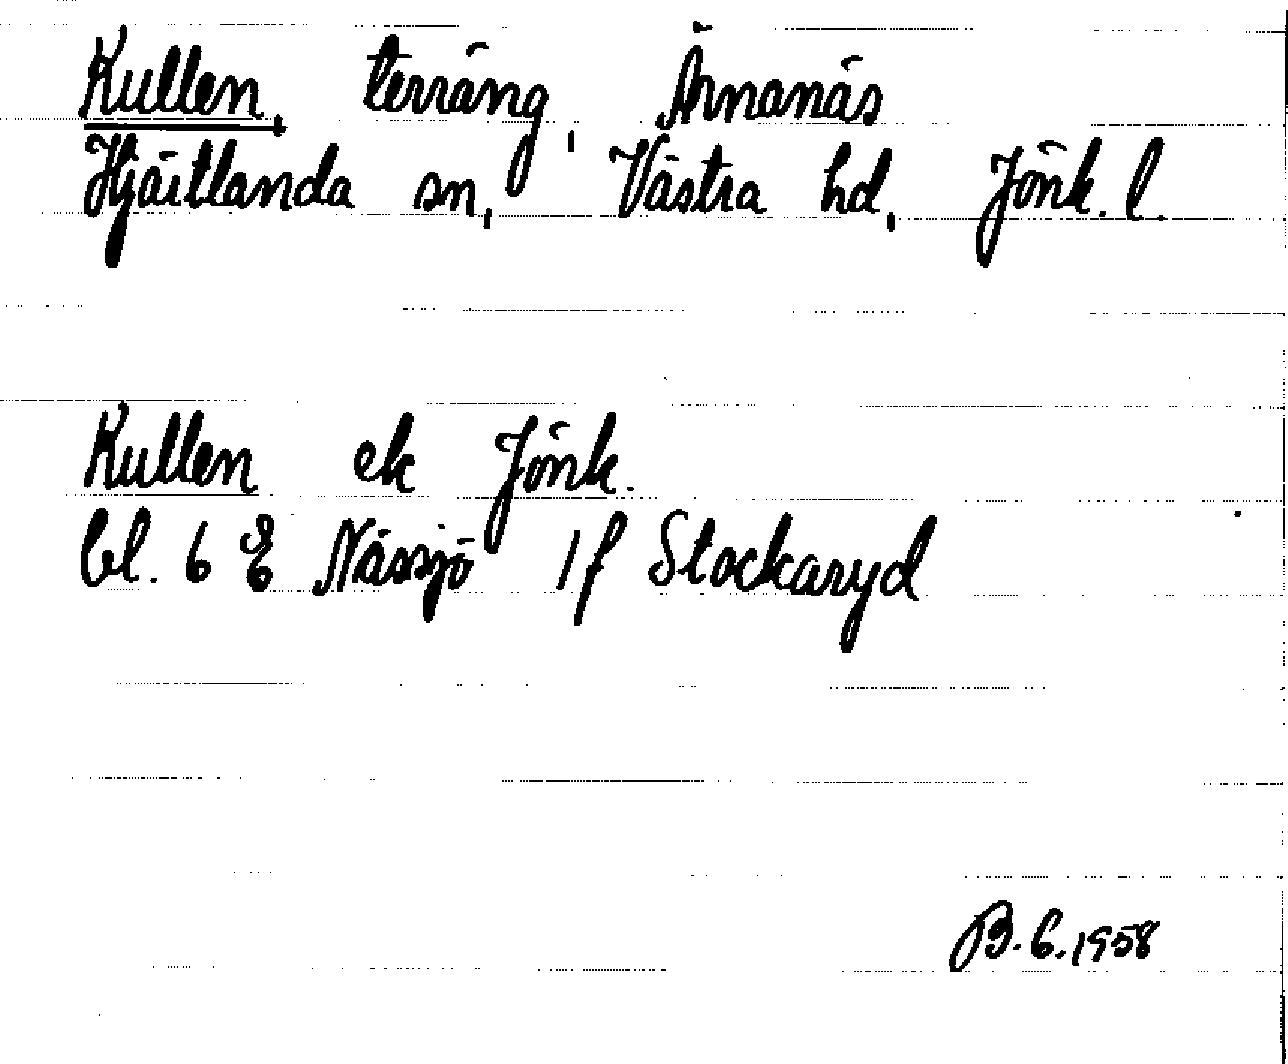 Kullen, terräng, Årnanäs
Hjärtlanda sn, Västra hd, Jönk. l.
Kullen ek Jönk.
bl. 6 E Nässjö 1f Stockaryd
B.G. 1958